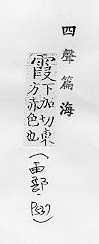 四聲篇海
霞下加切東
方赤色也
(雨部
P537)